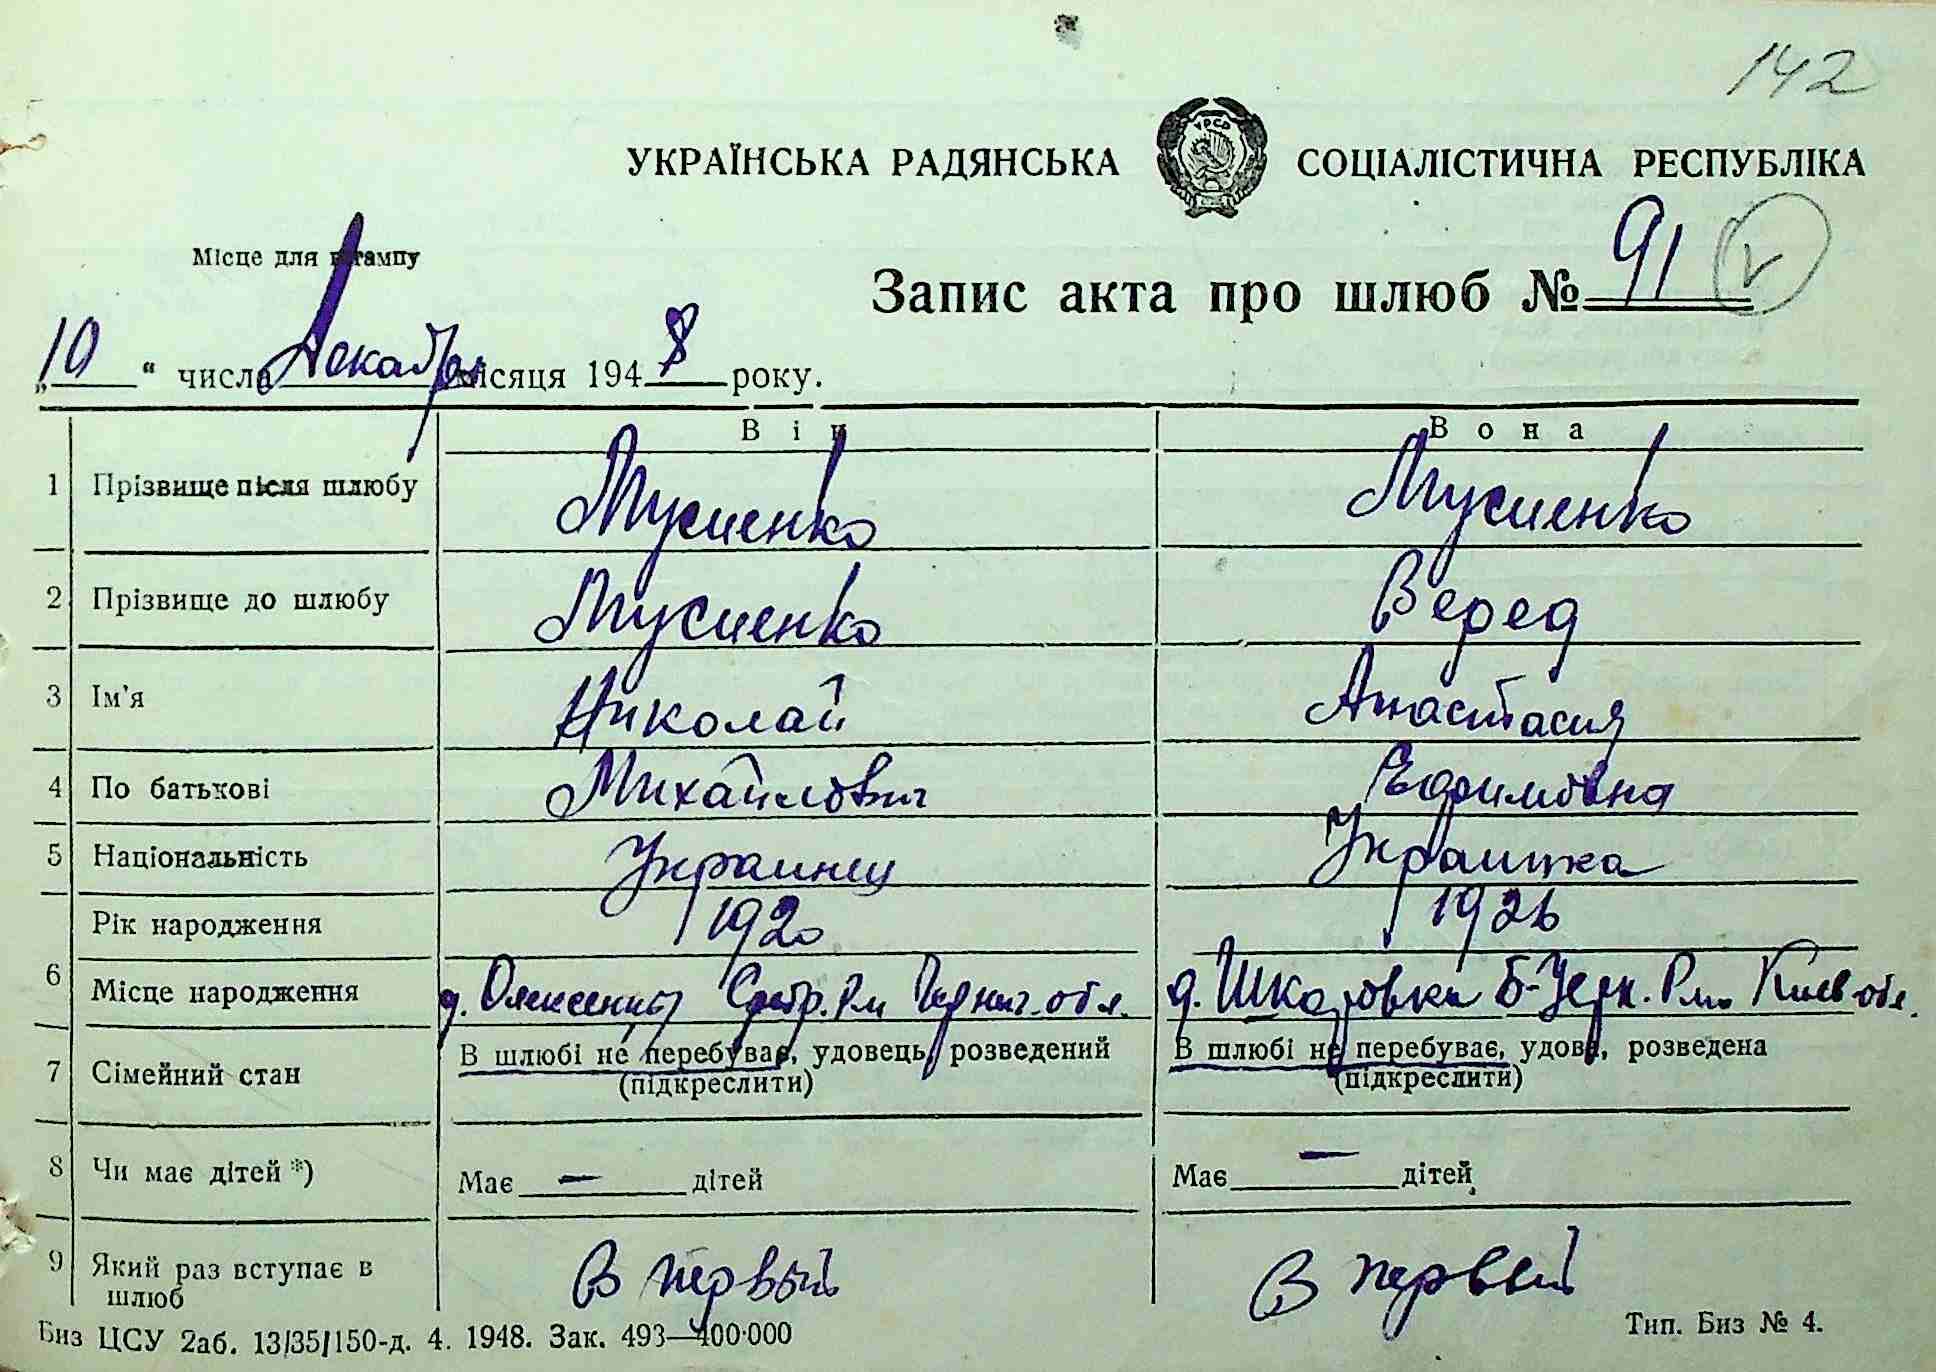 142
УКРАЇНСЬКА РАДЯНСЬКА СОЦІАЛІСТИЧНА РЕСПУБЛІКА
Місце для штампу
Запис акта про шлюб № 91
„10“ числа Декабря місяця 1948 року.
Він Вона
1 Прізвище після шлюбу Мусиенко Мусиенко
2 Прізвище до шлюбу Мусиенко Веред
3 Ім'я Николай Анастасия
4 По батькові Михайлович Ефимовна
5 Національність Украинец Украинка
Рік народження 1920 1926
6 Місце народження д. Олексенцы Сребр. Рн Черниг. обл. д. Шкаровка Б-Церк. Рн. Киев обл.
7 Сімейний стан В шлюбі не перебуває, удовець, розведений В шлюбі не перебуває, удова, розведена
(підкреслити) (підкреслити)
8 Чи має дітей *) Має — дітей Має — дітей
9 Який раз вступає в шлюб В первый В первый
Биз ЦСУ 2аб. 13/35/150-д. 4. 1948. Зак. 493—400·000 Тип. Биз № 4.